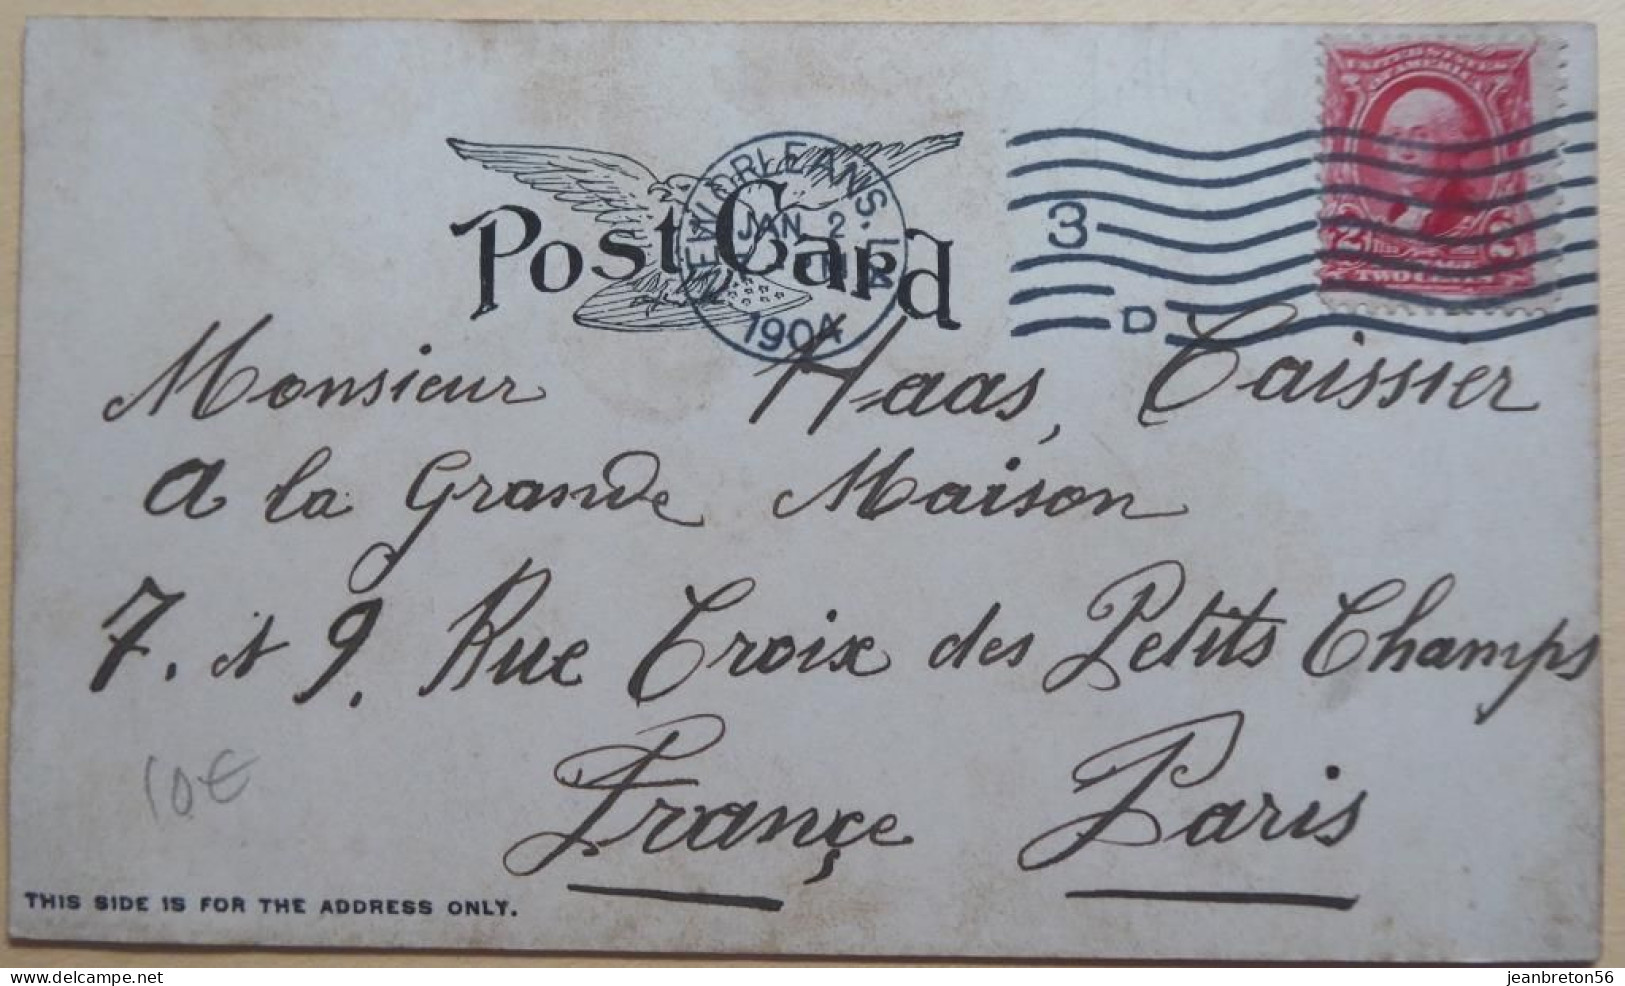 UNITED STATES
OF AMERICA
2 2
TWO CENTS
NEW ORLEANS. LA
JAN 2
1904
3
D
Post Card
Monsieur Haas, Caissier
a la Grande Maison
7. et 9. Rue Croix des Petits Champs
Françe Paris
10€
THIS SIDE IS FOR THE ADDRESS ONLY.
www.delcampe.net
jeanbreton56